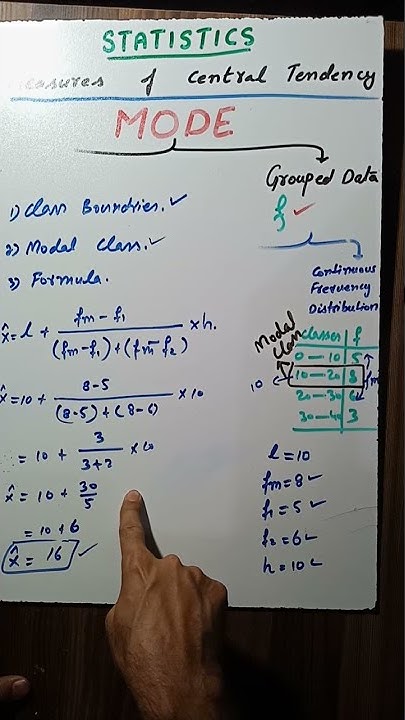 STATISTICS
Measures of Central Tendency
MODE
Grouped Data
f ✓
Continuous
Frequency
Distribution
1) Class Boundries. ✓
2) Modal Class. ✓
3) Formula.
x̂ = l + (fm - f1) / ((fm - f1) + (fm - f2)) × h.
x̂ = 10 + (8-5) / ((8-5) + (8-6)) × 10
= 10 + 3 / (3+2) × 10
x̂ = 10 + 30/5
= 10 + 6
x̂ = 16 ✓
Modal
Class
classes f
0 — 10 5
10 — 20 8 fm
20 — 30 6
30 — 40 3
10
l = 10
fm = 8 ✓
f1 = 5 ✓
f2 = 6 ✓
h = 10 ✓